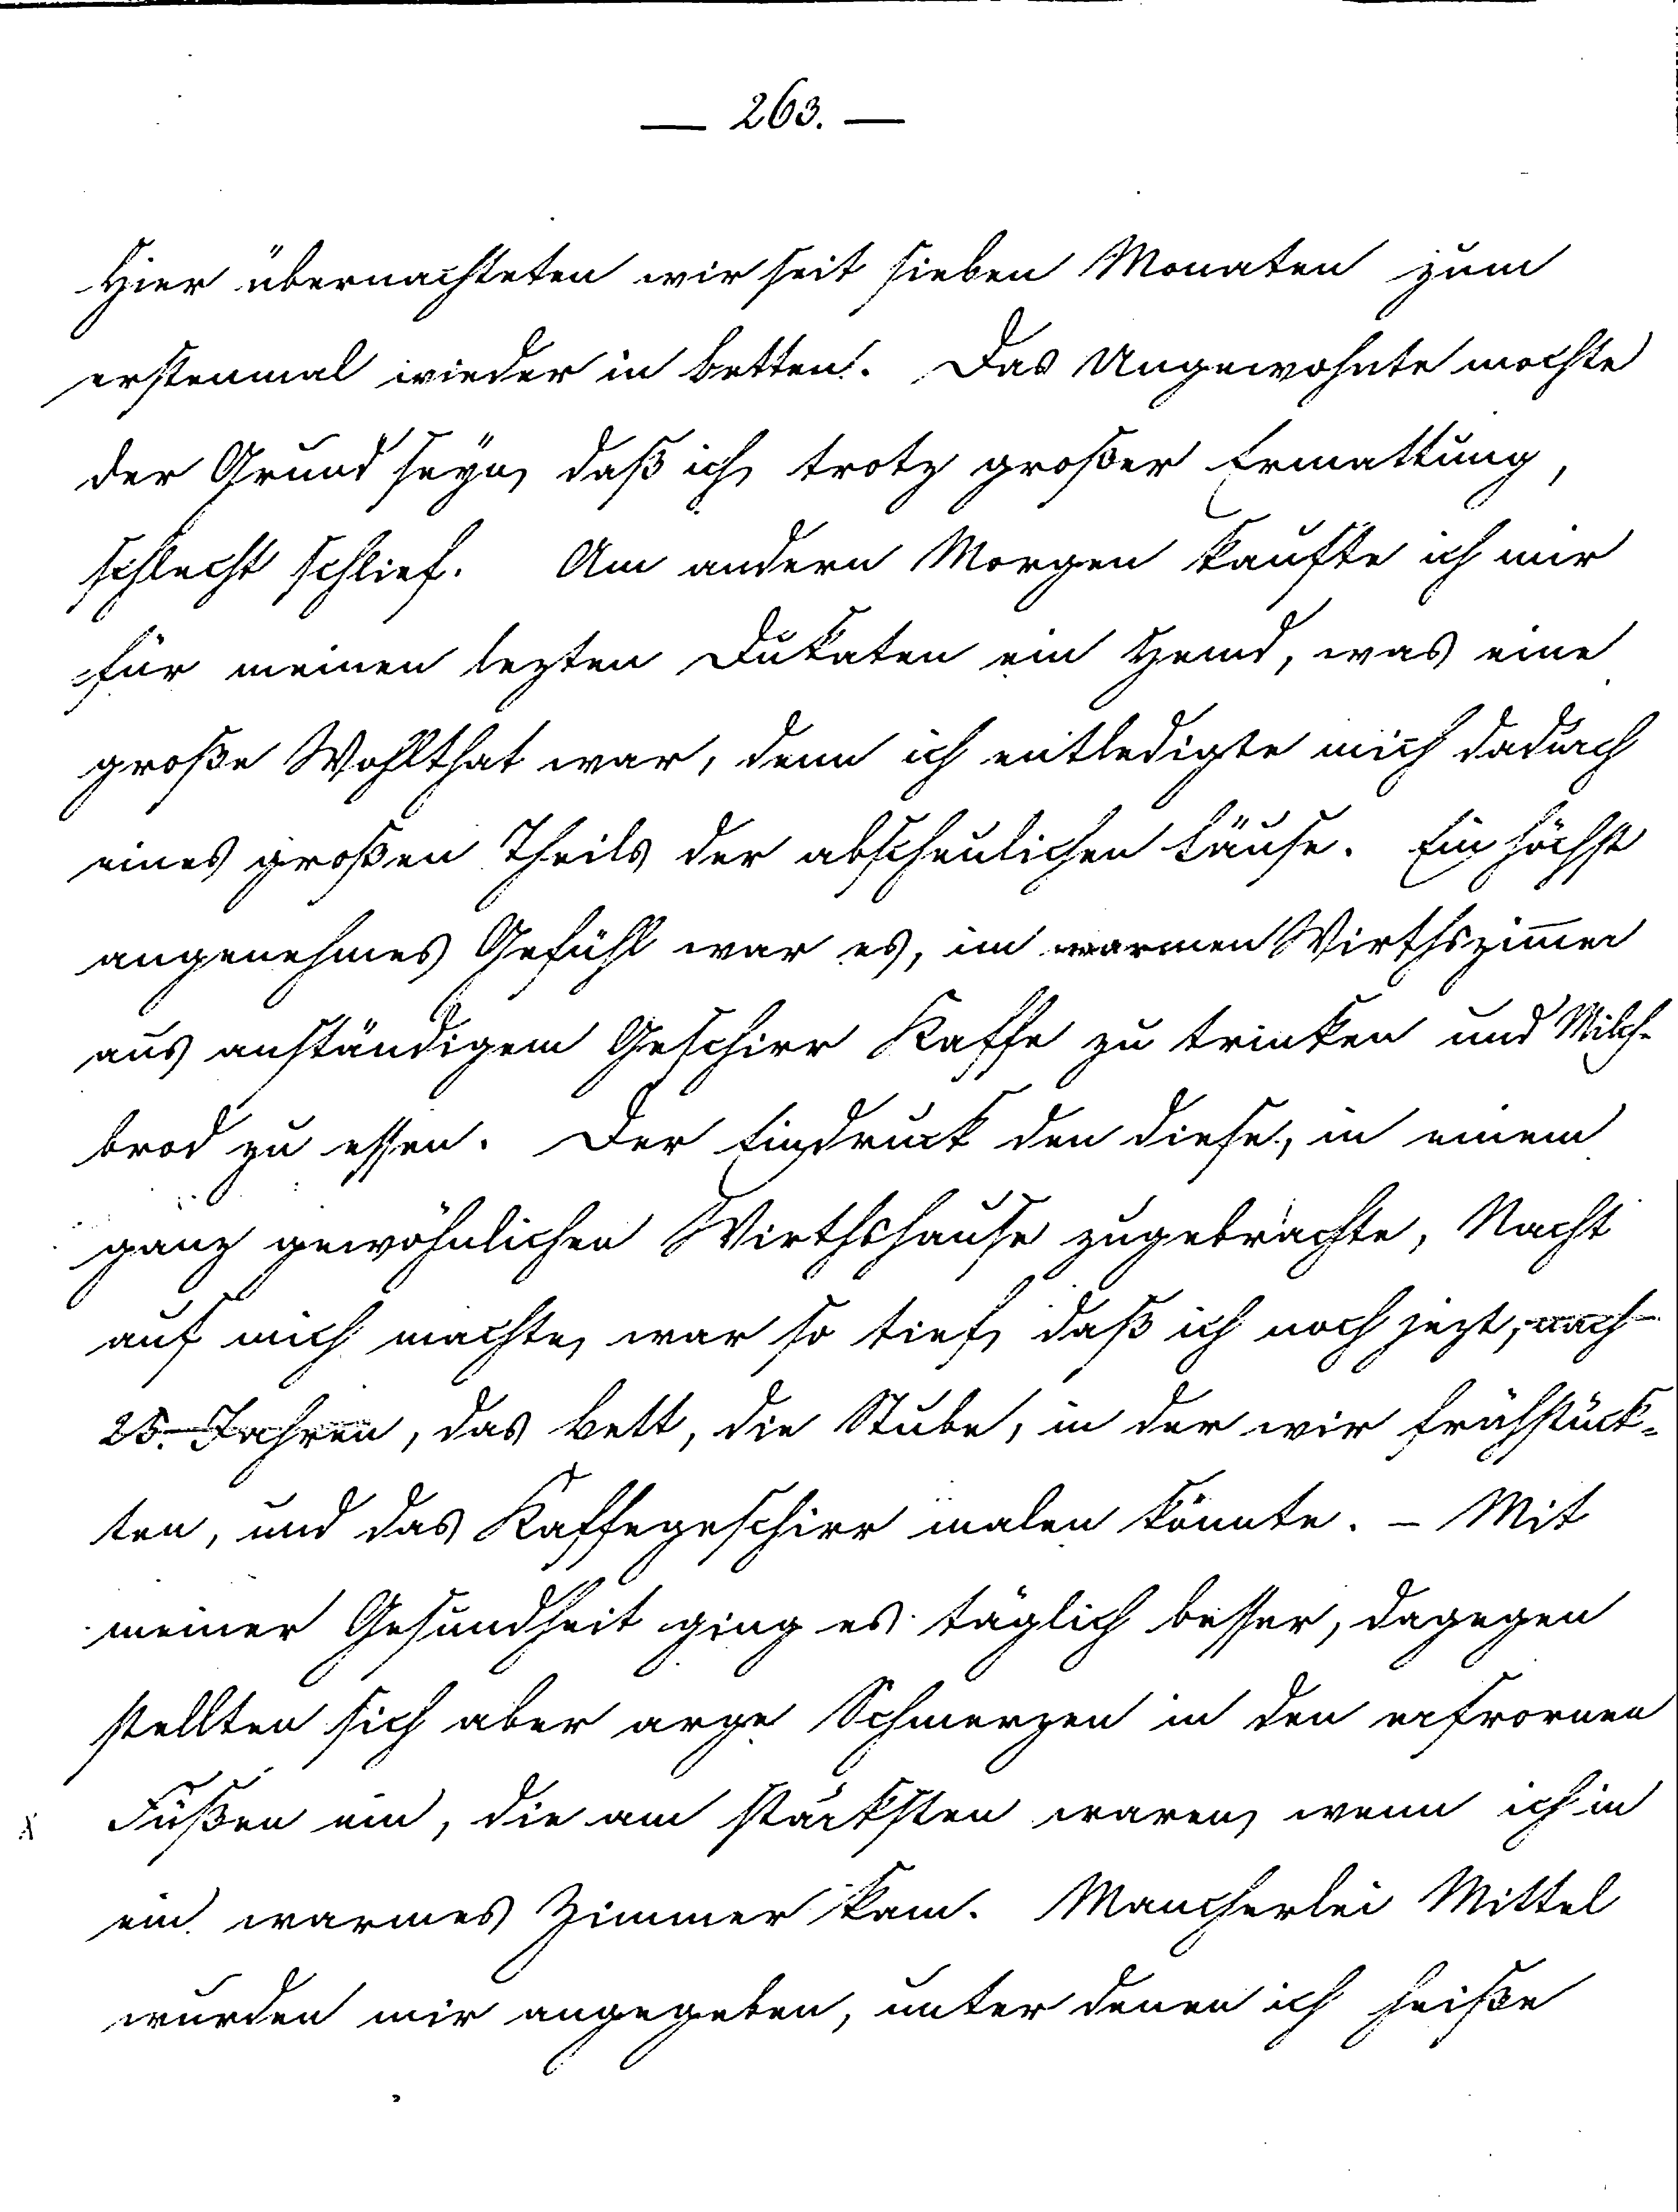 — 263. —
Hier übernachteten wir seit sieben Monaten zum
erstenmal wieder in Betten. Das Ungewohnte mochte
der Grund seyn, daß ich, trotz großer Ermattung,
schlecht schlief. Am andern Morgen kaufte ich mir
für meinen lezten Dukaten ein Hemd, was eine
große Wohlthat war, denn ich entledigte mich dadurch
eines großen Theils der abscheulichen Läuse. Ein höchst
angenehmes Gefühl war es, im warmen Wirthszim̅er
aus anständigem Geschirr Kaffe zu trinken und Milch-
brod zu essen. Der Eindruck den diese, in einem
ganz gewöhnlichen Wirthshause zugebrachte, Nacht
auf mich machte, war so tief, daß ich noch jezt, nach
25. Jahren, das Bett, die Stube, in der wir frühstück-
ten, und das Kaffegeschirr malen könnte. – Mit
meiner Gesundheit ging es täglich besser, dagegen
stellten sich aber arge Schmerzen in den erfrornen
Füßen ein, die am stärksten waren, wenn ich in
ein warmes Zimmer kam. Mancherlei Mittel
wurden mir angegeben, unter denen ich heiße